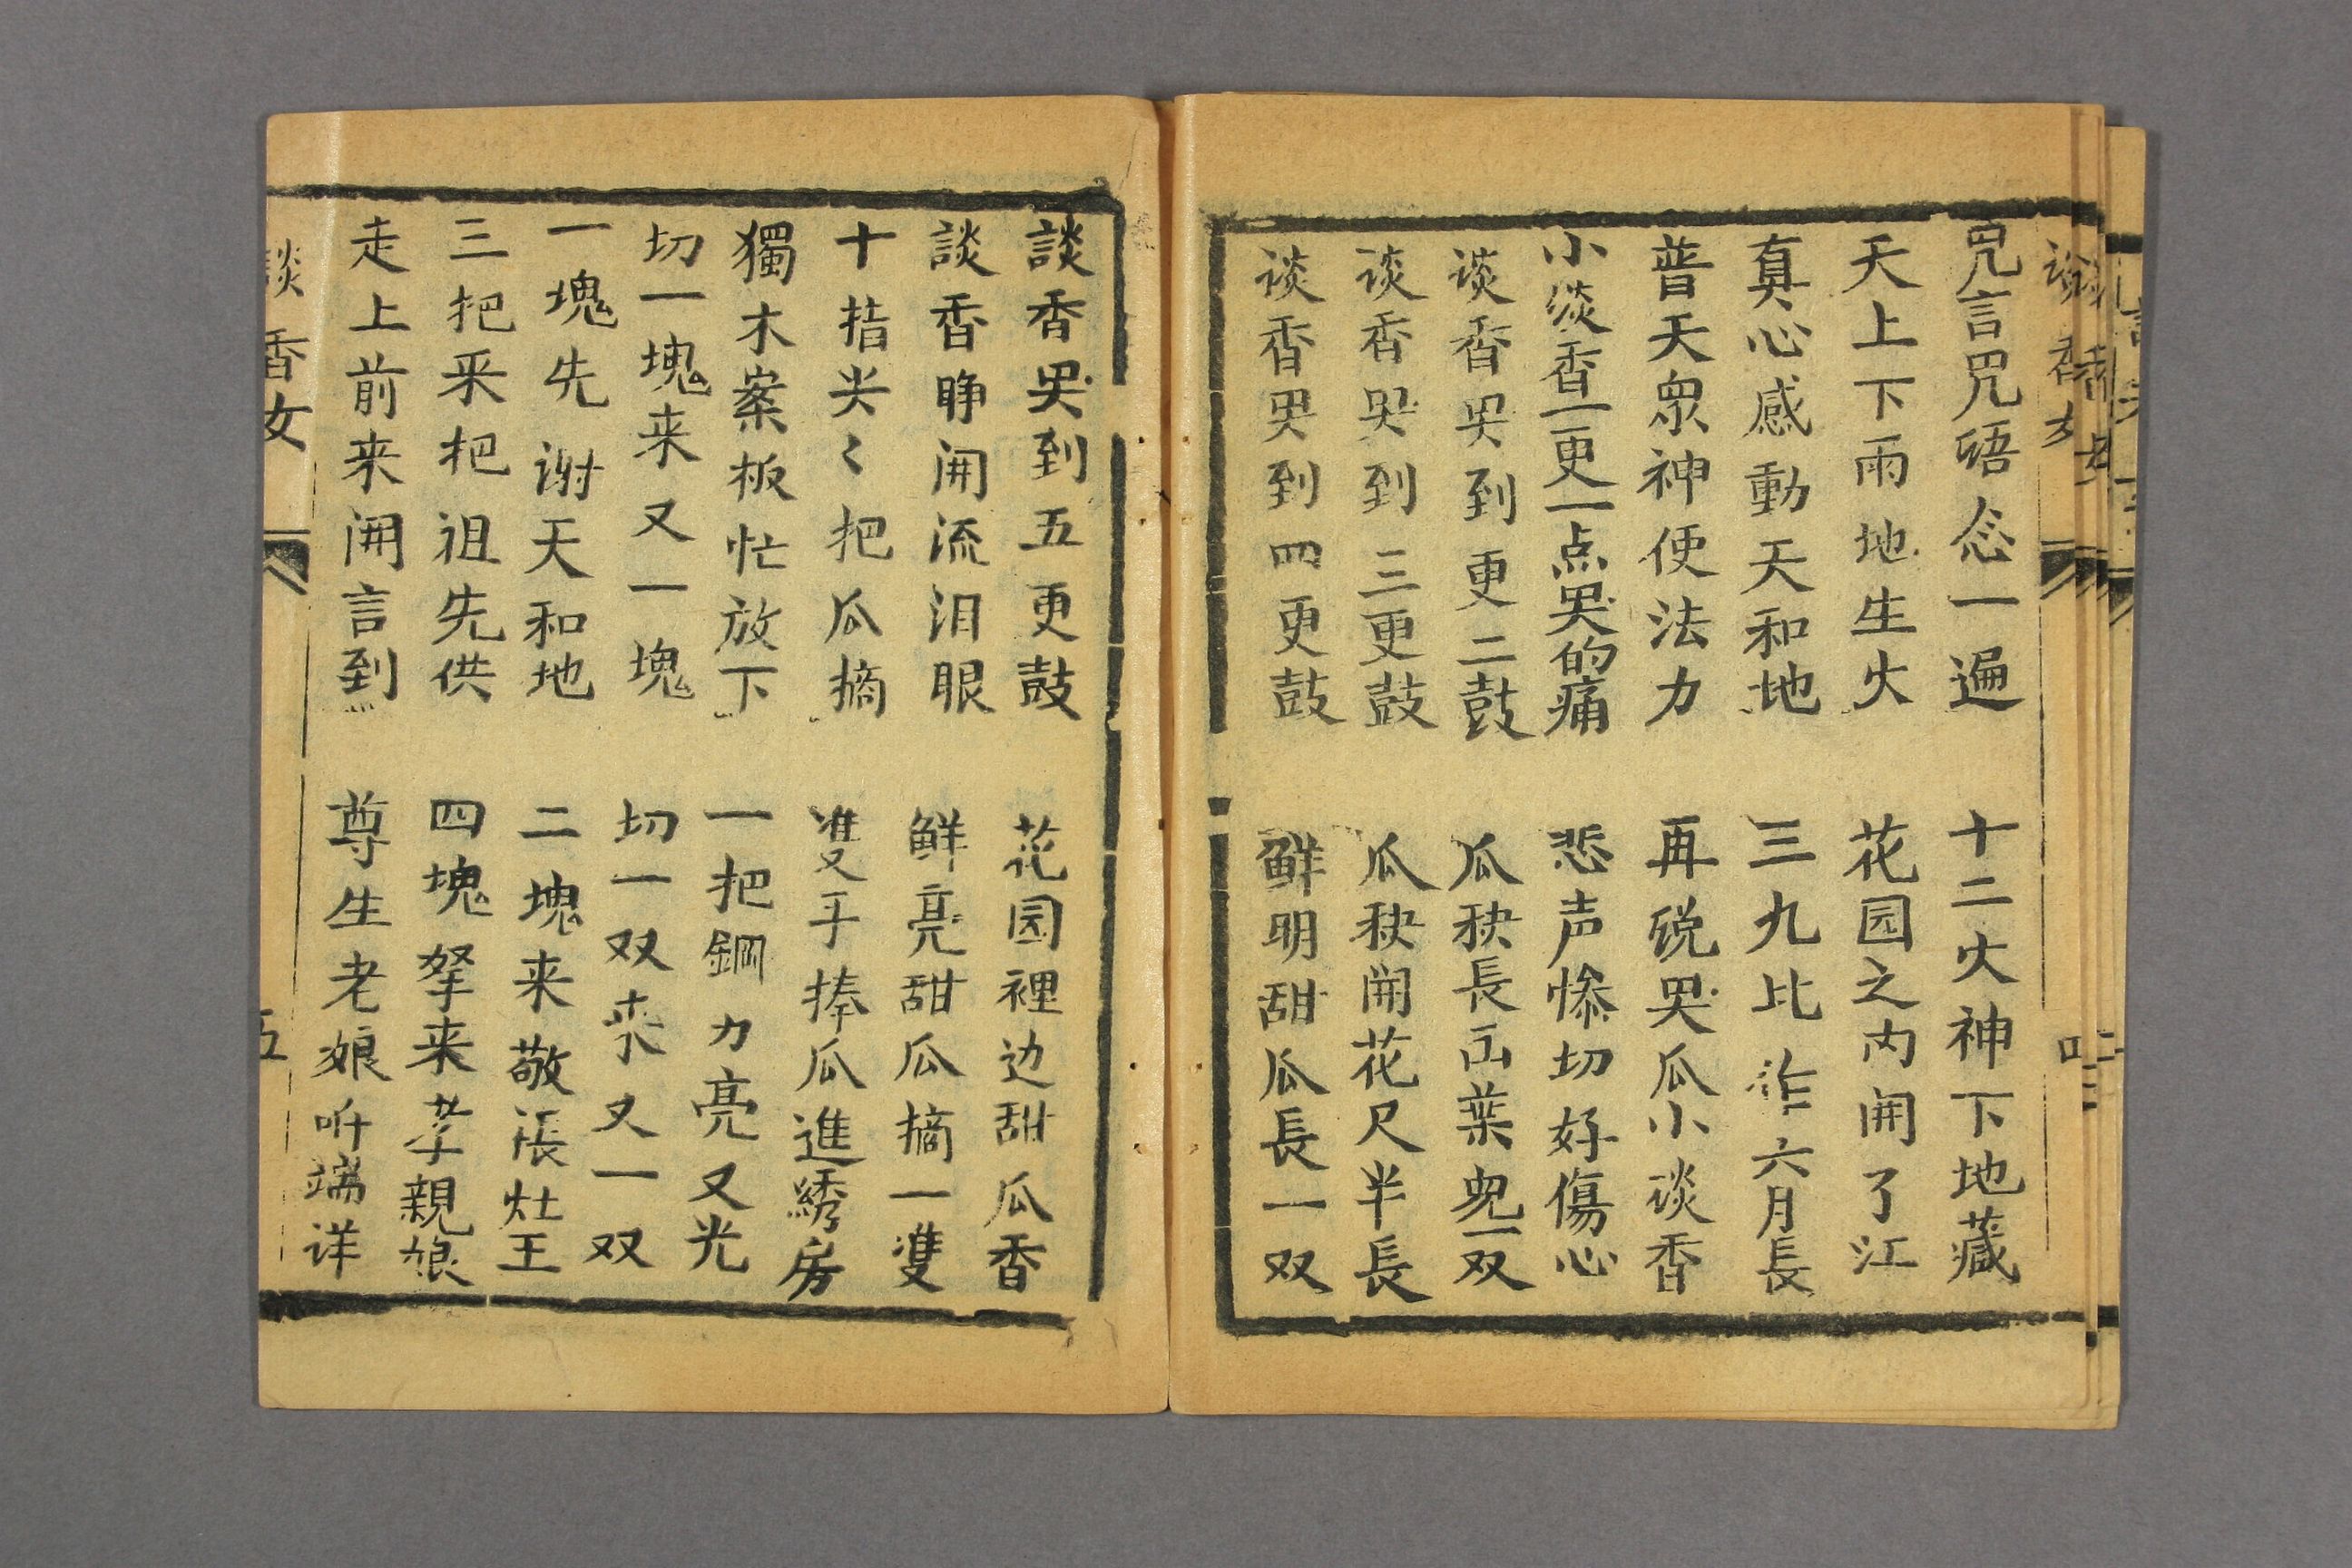 咒言咒語念一遍 十二火神下地藏
天上下雨地生火 花园之内開了江
真心感動天和地 三九比作六月長
普天眾神使法力 再说哭瓜小谈香
小谈香一更一点哭的痛 悲声惨切好傷心
谈香哭到更二鼓 瓜秧長出葉兒一双
谈香哭到三更鼓 瓜秧開花尺半長
谈香哭到四更鼓 鲜明甜瓜長一双
談香哭到五更鼓 花园裡边甜瓜香
談香睁開流泪眼 鮮亮甜瓜摘一隻
十指尖〻把瓜摘 隻手捧瓜進綉房
獨木案板忙放下 一把鋼力亮又光
切一塊来又一塊 切一双来又一双
一塊先谢天和地 二塊来敬張灶王
三把采把祖先供 四塊拏来孝親娘
走上前来開言到 尊生老娘听端详
談香女
五